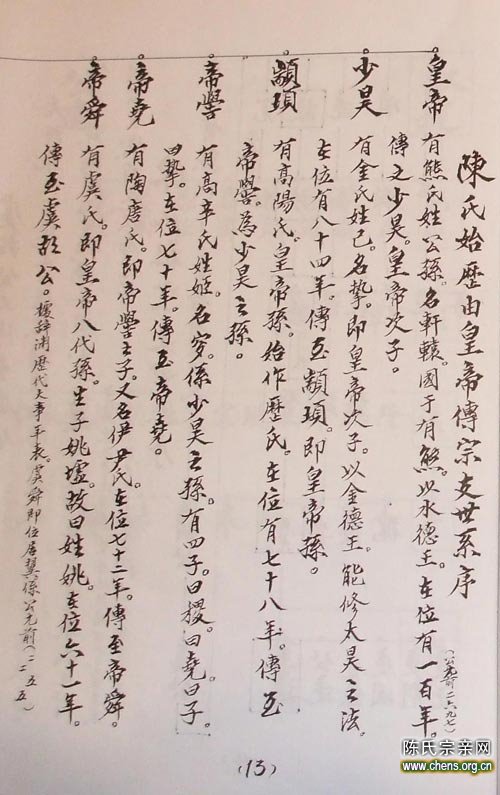 陳氏始歷由皇帝傳宗支世系序
皇帝
有熊氏姓公孫。名軒轅。國于有熊。以水德王。在位有一百年。
(公元前二六九七)
傳之少昊。皇帝次子。
少昊
有金氏姓己。名摯。即皇帝次子。以金德王。能修太昊之法。
在位有八十四年。傳至顓頊。即皇帝孫。
顓頊
有高陽氏。皇帝孫。始作歷氏。在位有七十八年。傳至
帝嚳。為少昊之孫。
帝嚳
有高辛氏姓姬。名岁。係少昊之孫。有四子。曰稷。曰堯。曰子。
曰摯。在位七十年。傳至帝堯。
帝堯
有陶唐氏。即帝嚳之子。又名伊尹氏。在位七十二年。傳至帝舜。
帝舜
有虞氏。即皇帝八代孫。生子姚墟。故曰姓姚。在位六十一年。
傳至虞胡公。據辭渊歷代大事年表。虞舜即位居冀係公元前(二二五五)
(13)
陈氏宗亲网
www.chens.org.cn